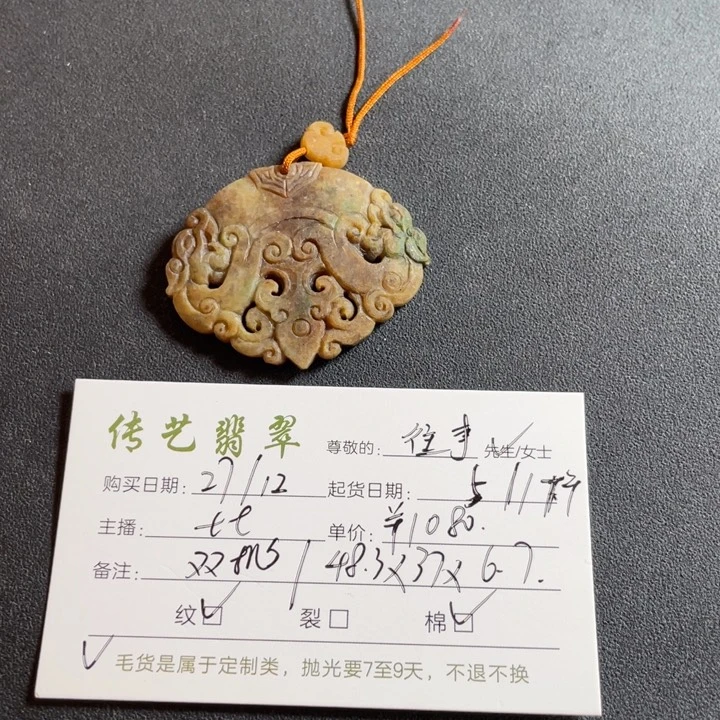 传艺翡翠 尊敬的: 往事 先生/女士
购买日期: 27/12 起货日期: 5/1
主播: 七七 单价: ¥1080.
备注: 双 / 48.3X37X6.7.
纹☑ 裂□ 棉☑
✓ 毛货是属于定制类，抛光要7至9天，不退不换